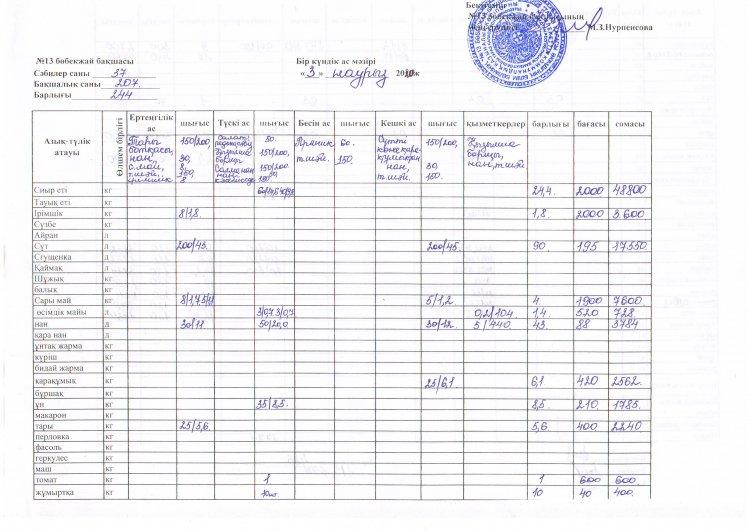 Бекітемін
№13 бөбекжай бақшасының
Меңгерушісі М.З.Нурпеисова
№13 бөбекжай бақшасы
Сәбилер саны 37
Бақшалық саны 207.
Барлығы 244
Бір күндік ас мәзірі
« 3 » наурыз ж
Азық-түлік атауы | Өлшем бірлігі | Ертеңгілік ас | шығыс | Түскі ас | шығыс | Бесін ас | шығыс | Кешкі ас | шығыс | қызметкерлер | барлығы | бағасы | сомасы
Тары ботқасы, нан, с.май, т.шәй, ірімшік | 150/200, 30, 8, 150, 8 | 50. 150/200, 150/200 | Пряник т.шәй | 60. 150. | Сүтті нан, т.шәй. | 150/200, 30, 150. | борщ, нан, т.шәй
Сиыр еті кг 24,4. 2000 48800
Тауық еті кг
Ірімшік кг 8/1,8. 1,8. 2000 3.600
Сүзбе кг
Айран л
Сүт л 200/45. 200/45. 90 195 17550.
Сгущенка л
Қаймақ л
Шұжық кг
балық кг
Сары май кг 5/1,2 4. 1900 7600.
өсімдік майы л 0,2/104. 1,4. 520 728.
нан л 30/11 50/20,0 30/12. 5/440. 43. 88 3784
қара нан л
ұнтақ жарма кг
күріш кг
бидай жарма кг
қарақұмық кг 25/6,1. 6,1 420 2562.
бұршақ кг
ұн кг 35/8,5. 8,5. 210. 1785.
макарон кг
тары кг 25/5,6. 5,6. 400. 2240
перловка кг
фасоль кг
геркулес кг
маш кг
томат кг 1 1 600 600.
жұмыртка кг 10шт. 10 40 400.